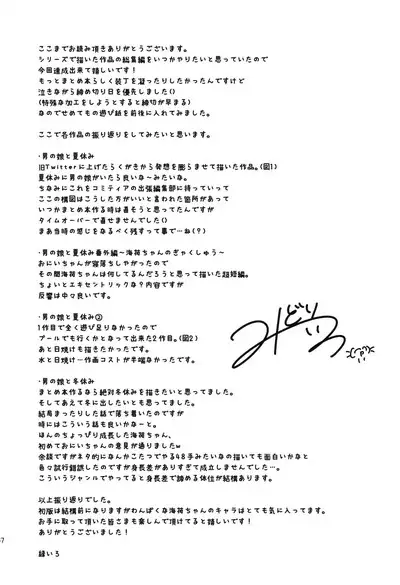 ここまでお読み頂きありがとうございます。
シリーズで描いた作品の総集編をいつかやりたいと思っていたので
今回達成出来て嬉しいです！
もっとまとめ本らしく装丁を凝ったりしたかったんですけど
泣きながら締め切り日を優先しました()
(特殊な加工をしようとすると締切が早まる)
なのでせめてもの遊び紙を前後に入れてみました。
ここで各作品の振り返りをしてみたいと思います。
・男の娘と夏休み
旧Twitterに上げたらくがきから発想を膨らませて描いた作品。(図1)
夏休みに男の娘がいたら良いな〜みたいな。
ちなみにこれをコミティアの出張編集部に持っていって
ここの構図はこうした方がいいと言われた箇所があって
いつかまとめ本作る時は直そうと思ってたんですが
タイムオーバーで直せませんでした()
まあ当時の感じをなるべく残すって事で…ね(?)
・男の娘と夏休み番外編〜海荷ちゃんのぎゃくしゅう〜
おにいちゃんが寝落ちしちゃったので
その間海荷ちゃんは何してるんだろうと思って描いた超短編。
ちょいとエキセントリックな？内容ですが
反響は中々良いです。
・男の娘と夏休み②
1作目で全く遊び足りなかったので
プールでも行くかとなって出来た2作目。(図2)
あと日焼けも描きたかったです。
水と日焼け…作画コストが半端なかったです。
・男の娘と冬休み
まとめ本作るなら絶対冬休みを描きたいと思ってました。
そしてあえて冬に出したいとも思ってました。
結局まったりした話で落ち着いたのですが
時にはこういう話も良いかなーと。
ほんのちょっぴり成長した海荷ちゃん、
初めておにいちゃんの意見が通りましたw
余談ですがネタ的になんかこたつでやる48手みたいなの描いても面白いかなと
色々試行錯誤したのですが身長差がありすぎて成立しませんでした…。
こういうジャンルでやってると身長差で諦める体位が結構あります。
以上振り返りでした。
初版は結構前になりますがわんぱくな海荷ちゃんのキャラはとても気に入ってます。
お手に取って頂いた皆さまも楽しんで頂けてると嬉しいです！
ありがとうございました！
緑いろ
みどりいろ